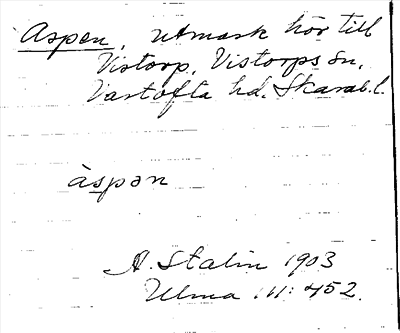 Aspen, utmark hör till
Vistorp, Vistorps sn,
Vartofta hd. Skarab. l.
àspən
A. Stalin 1903
Ulma 111:452.